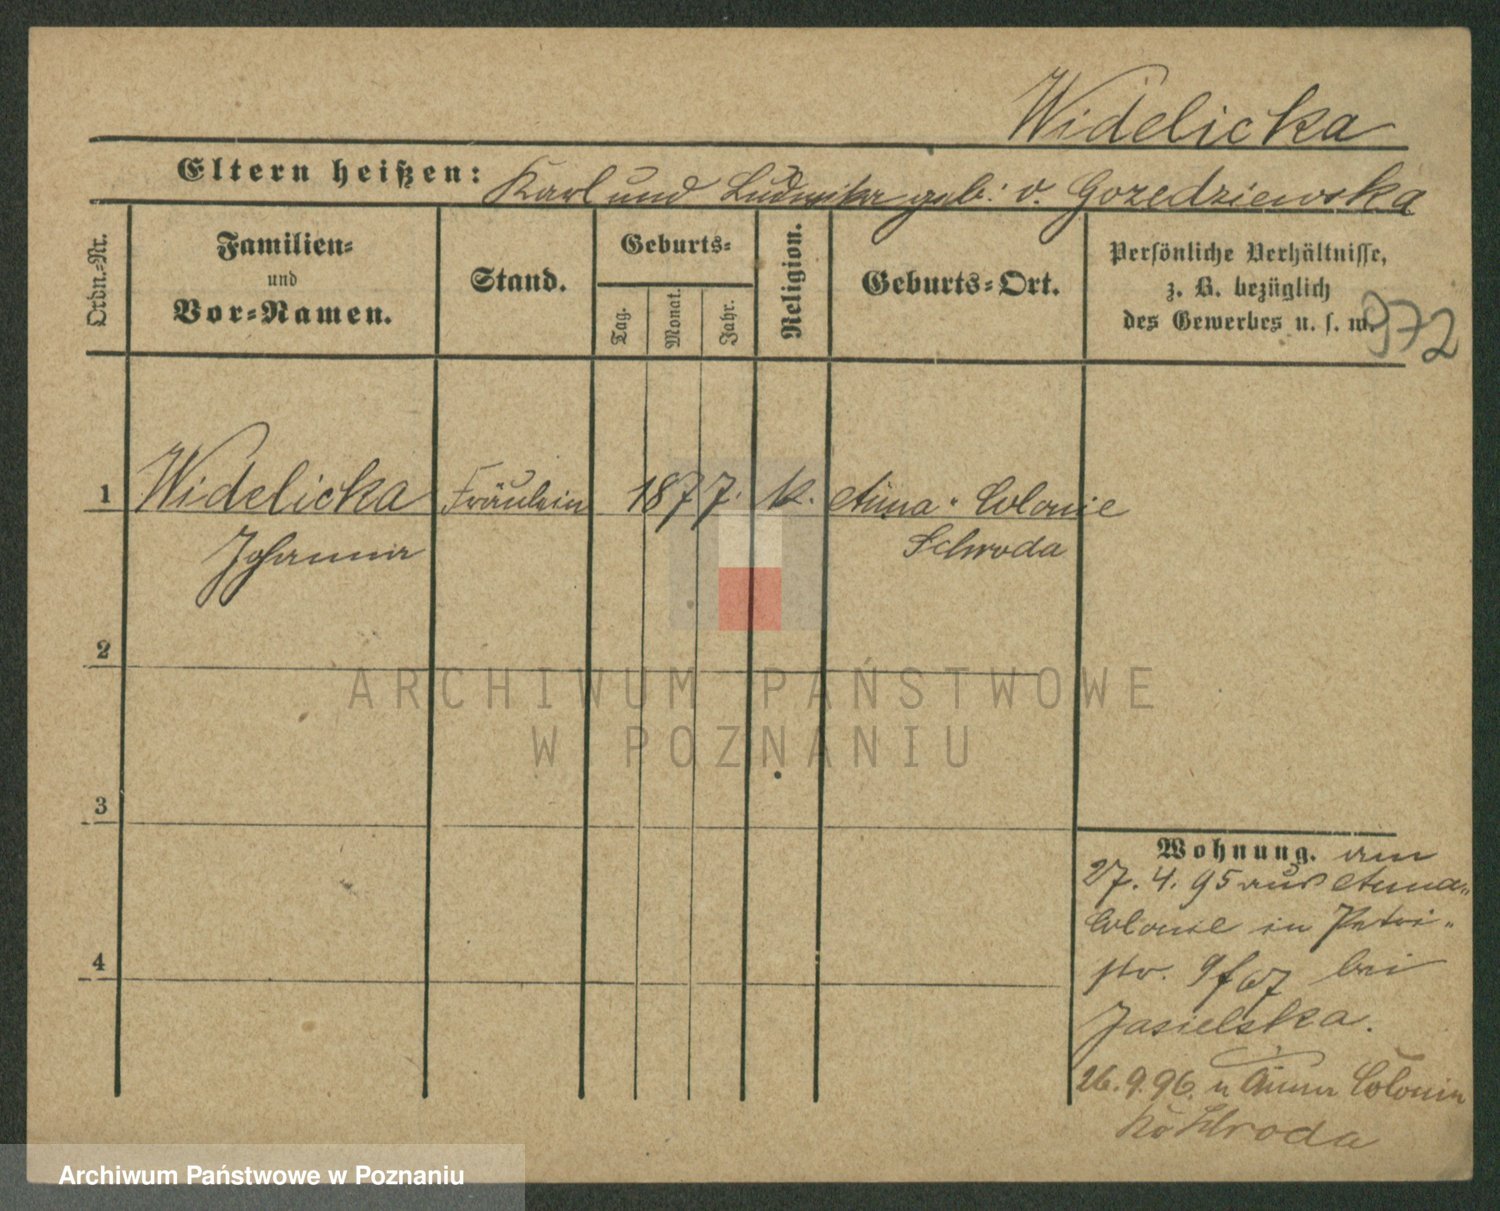 Widelicka
Eltern heißen: Karl und Ludwika geb: v. Gozedziewska
Ordn.=Nr.
Familien=
und
Vor=Namen.
Stand.
Geburts=
Tag.
Monat.
Jahr.
Religion.
Geburts=Ort.
Persönliche Verhältnisse,
z. B. bezüglich
des Gewerbes u. s. w.
972
1 Widelicka Fräulein 1877. k. Anna-Colonie
Johanna Schroda
2
3
4
Wohnung. am
27. 4. 95 aus Anna=
Colonie in Petri-
str. bei
Jasielska.
26. 9. 96. n Anna Colonie
Schroda
ARCHIWUM PAŃSTWOWE
W POZNANIU
Archiwum Państwowe w Poznaniu